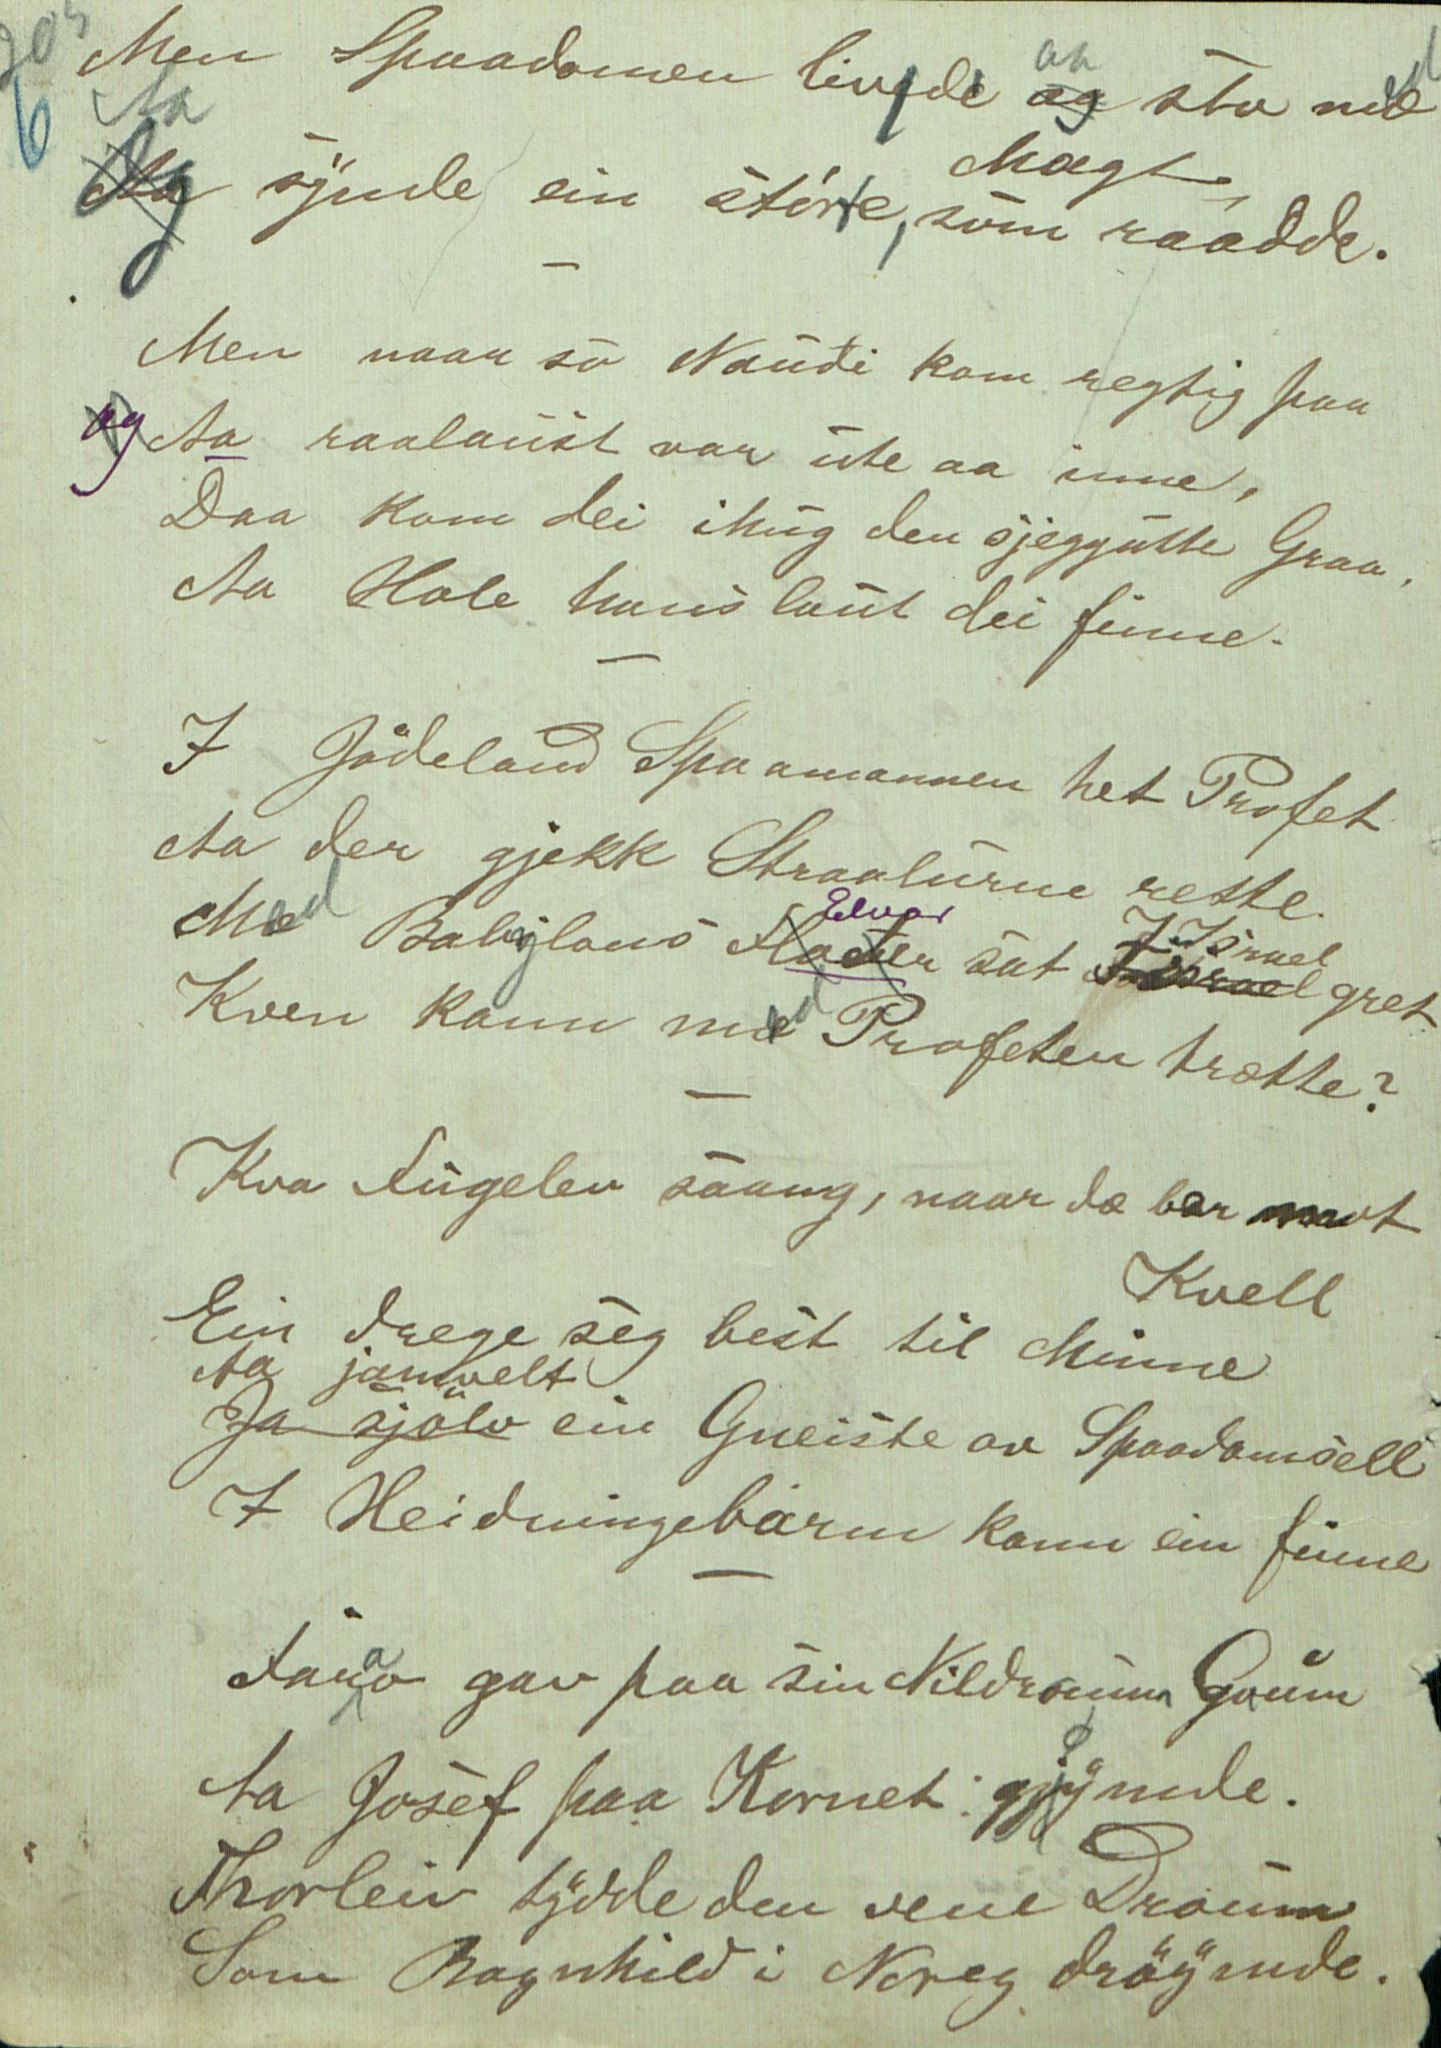 Men Spaadomen livde aa sto med
Magt
Aa synde ein störe, som raadde.
Men naar so Naudi kom regtig paa
og Aa raalaust var ute aa inne,
Daa kom dei ihug den sjeggutte Graa,
Aa Hole hans laut dei finne.
I Jödeland Spaamannen het Profet
Aa der gjekk Straalurne rette.
Med Babylons Elvar sat I Israel gret
Kven kann med Profeten trætte?
Kva Fugelen saang, naar dæ bar mot
Kvell
Ein drege seg best til Minne
Aa jamvelt
Ja sjölv ein Gneiste av Spaadomsell
I Heidningebarm kann ein finne
Farao gav paa sin Nildraum Gaum
Aa Josef paa Kornet gjöymde.
Thorleiv tydde den vene Draum
Som Ragnhild i Noreg dröymde.